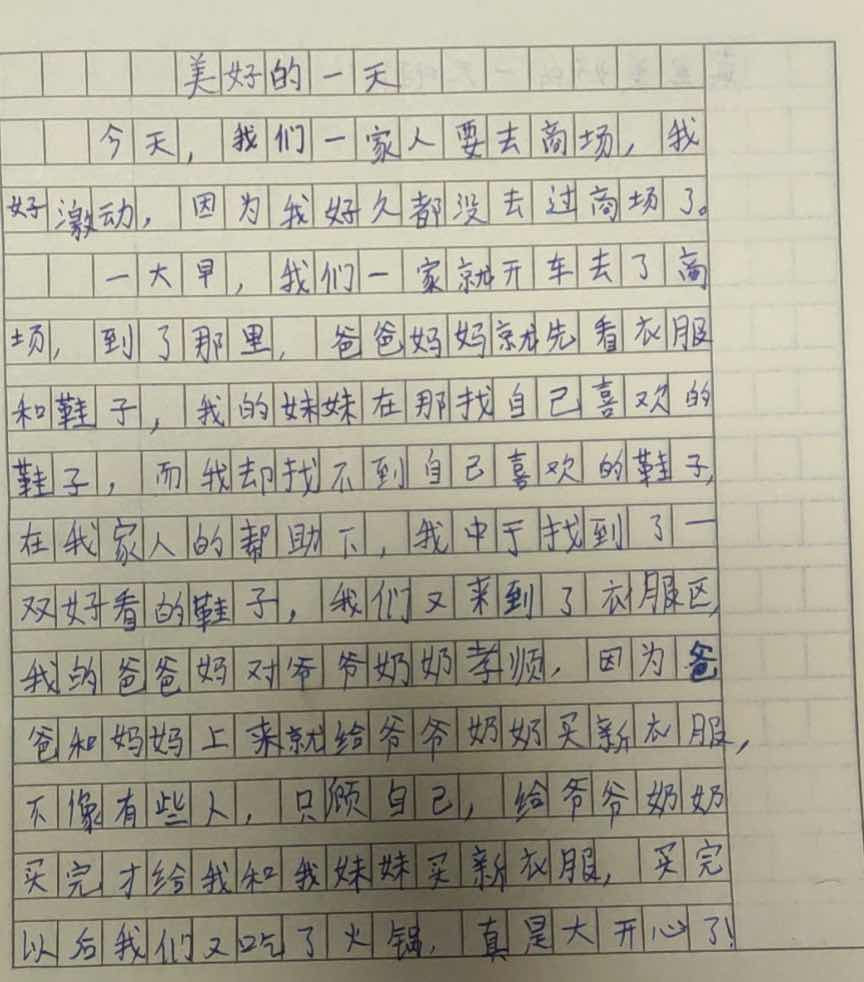 美好的一天
今天，我们一家人要去商场，我
好激动，因为我好久都没去过商场了。
一大早，我们一家就开车去了商
场，到了那里，爸爸妈妈就先看衣服
和鞋子，我的妹妹在那找自己喜欢的
鞋子，而我却找不到自己喜欢的鞋子，
在我家人的帮助下，我中于找到了一
双好看的鞋子，我们又来到了衣服区，
我的爸爸妈对爷爷奶奶孝顺，因为爸
爸和妈妈上来就给爷爷奶奶买新衣服，
不像有些人，只顾自己，给爷爷奶奶
买完才给我和我妹妹买新衣服，买完
以后我们又吃了火锅，真是大开心了！